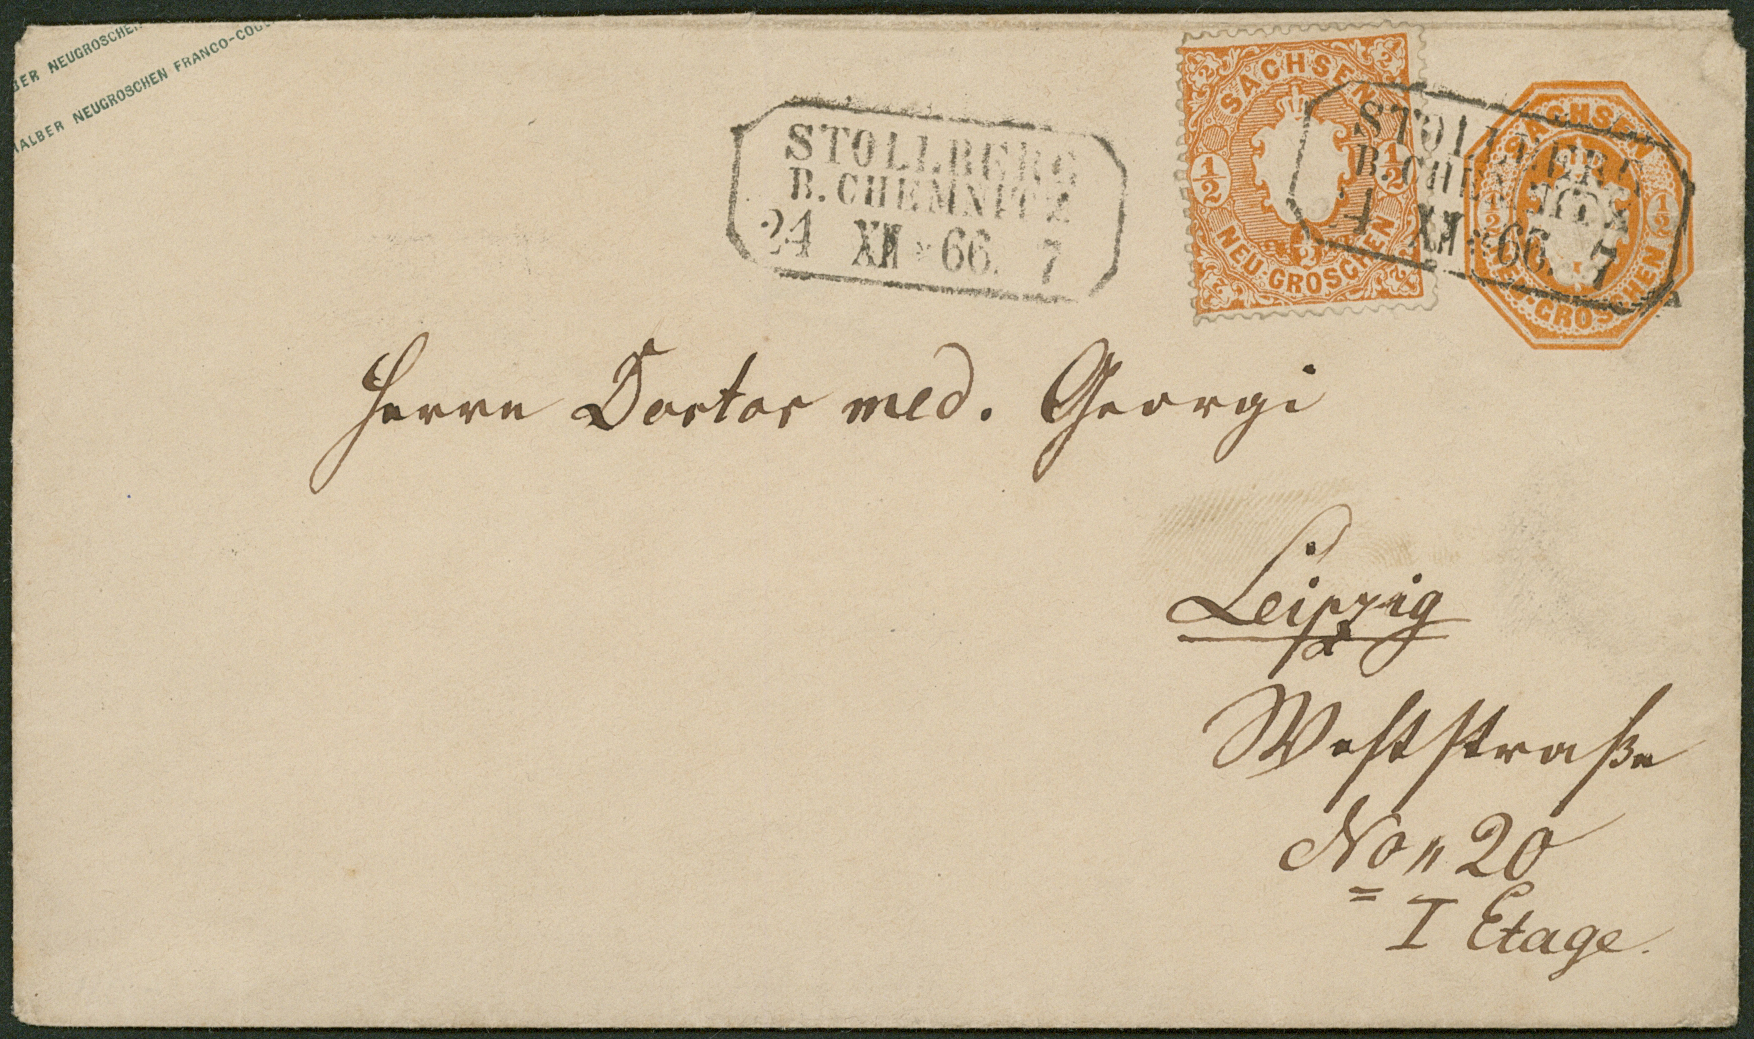 BER NEUGROSCHEN
HALBER NEUGROSCHEN FRANCO-COU
STOLLBERG
B. CHEMNITZ
24 XII * 66. 7
SACHSEN
1/2 1/2
NEU-GROSCHEN
STOLLBERG
B. CHEMNITZ
24 XII * 66. 7
SACHSEN
1/2 1/2
NEU-GROSCHEN
Herrn Doctor med. Georgi
Leipzig
Weststraße
No 20
I Etage.